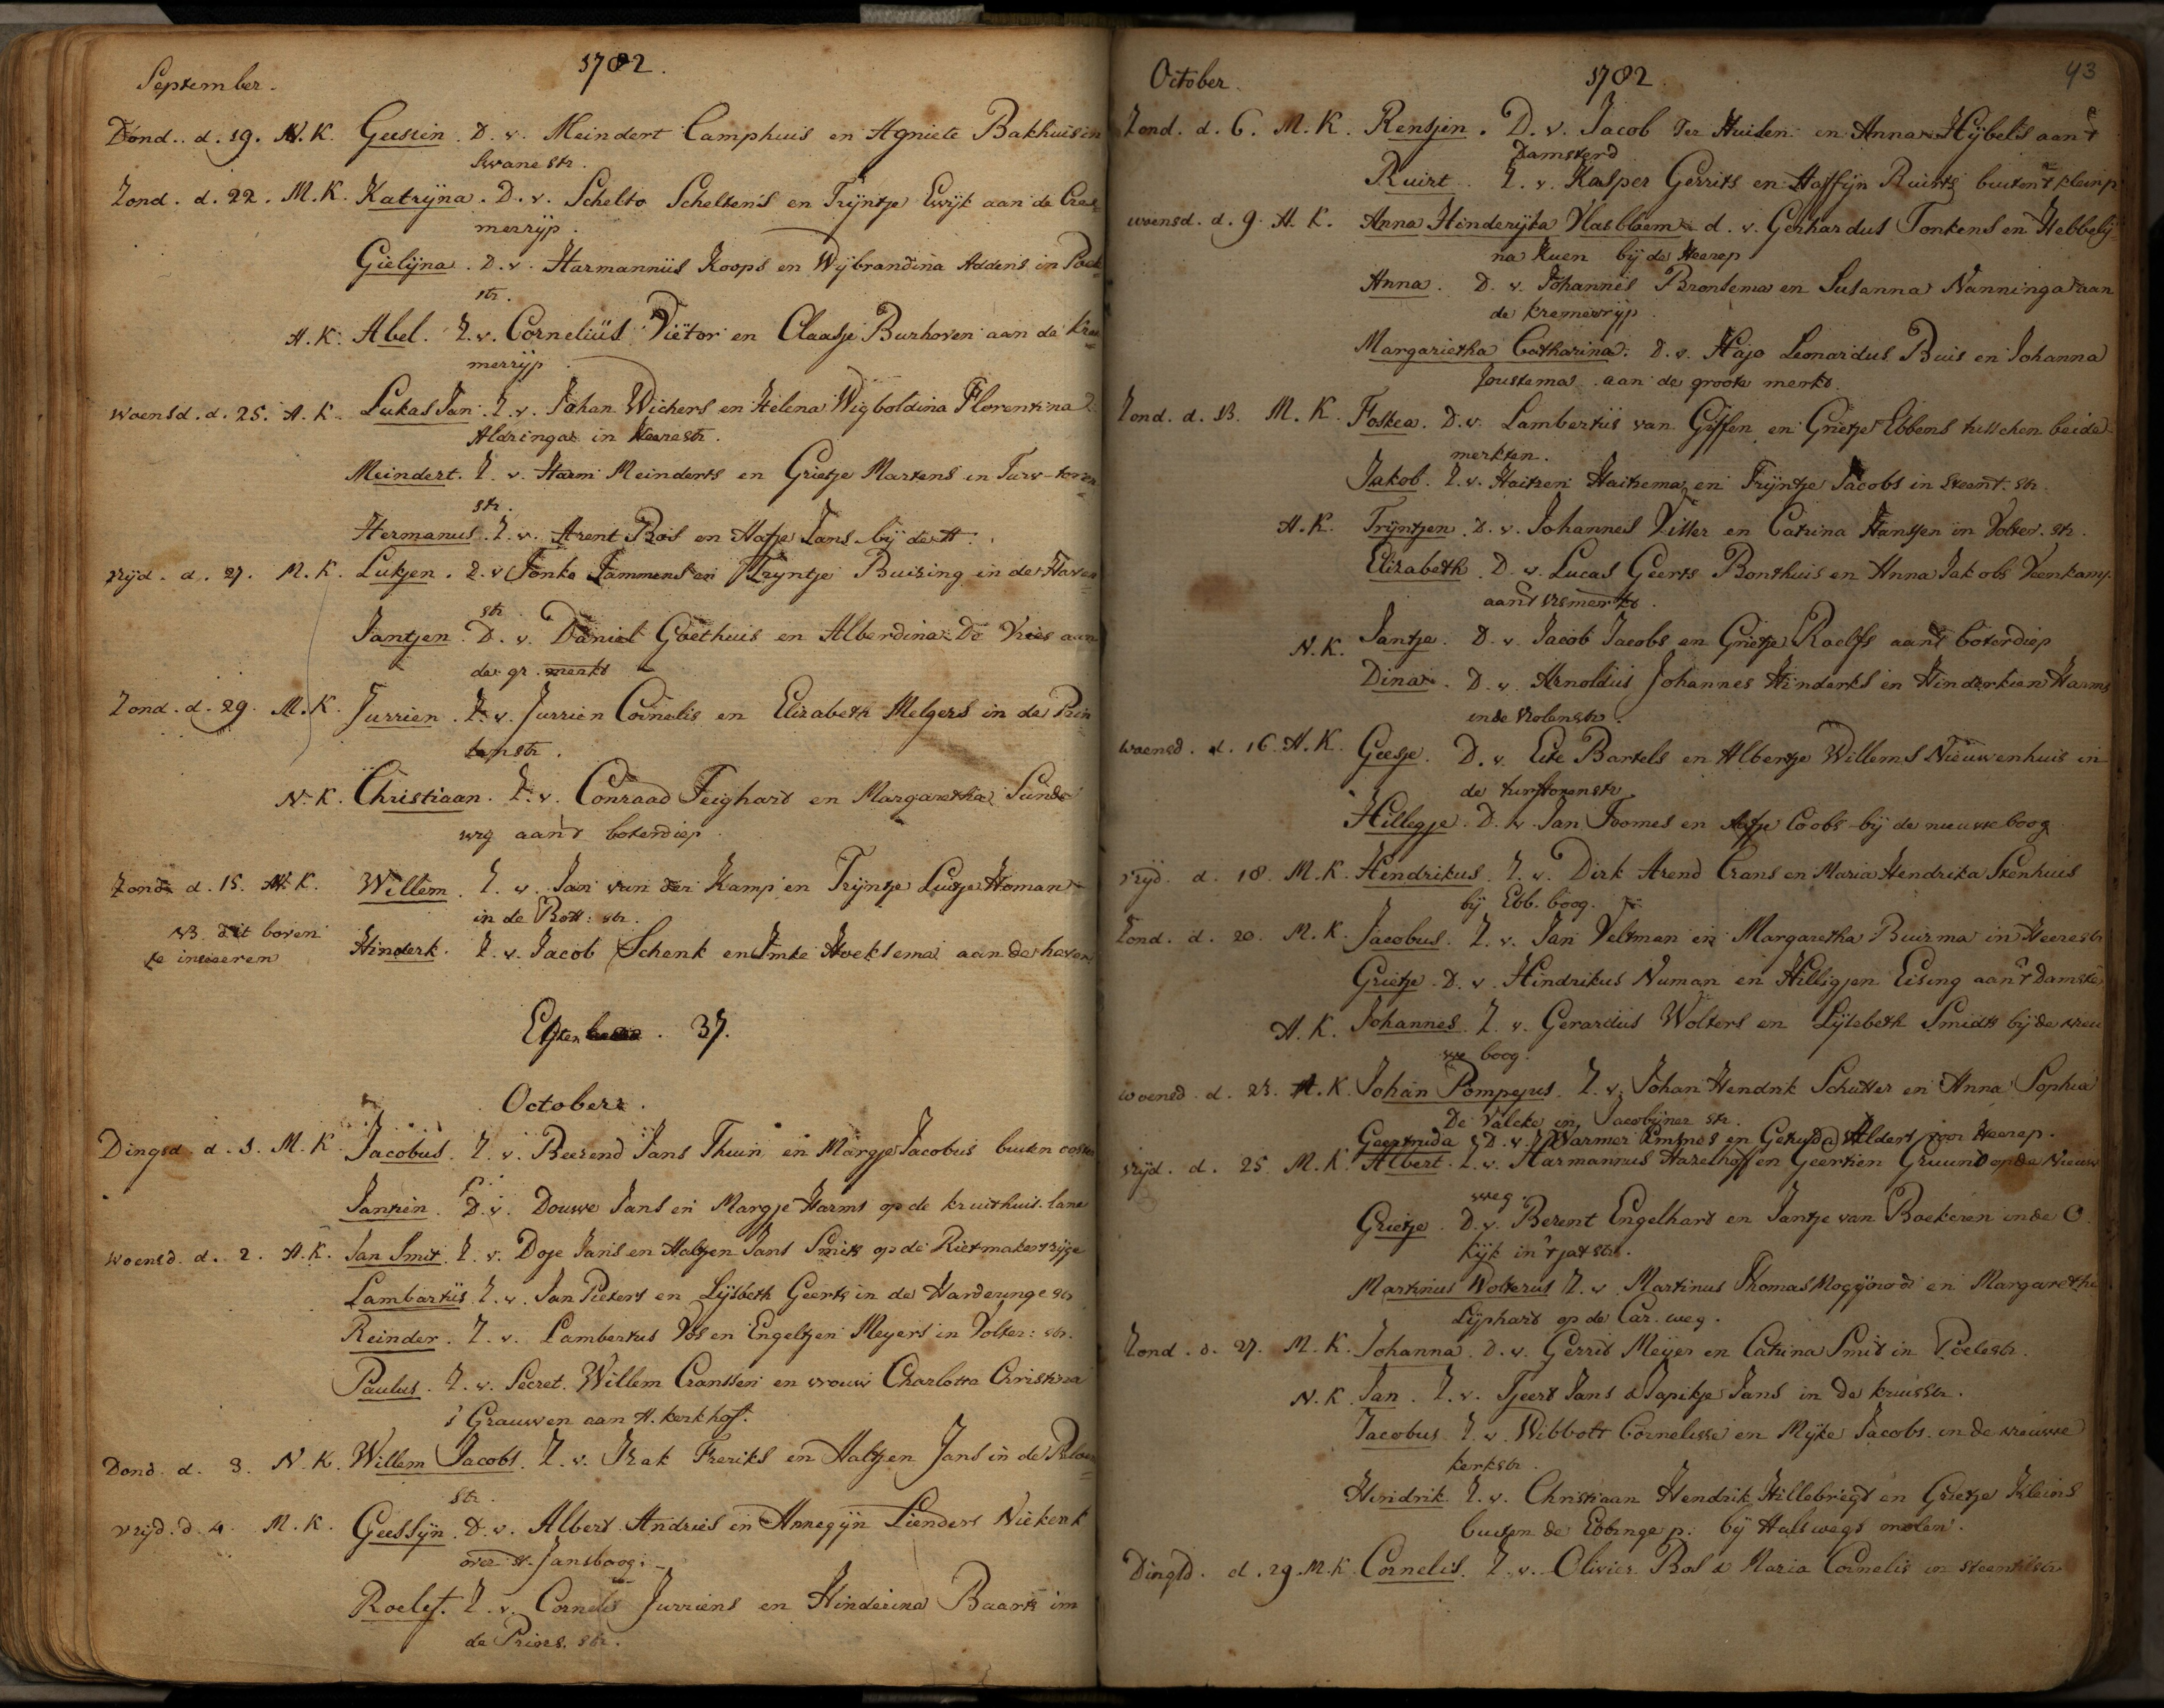 September. 1782.
Dond.. d. 19. N.K. Geessien. D. v. Meindert Camphuis en Agniete Bakhuis in
Swanestr.
Zond. d. 22. M.K. Katryna. D. v. Schelto Scheltens en Tryntje Ewyk aan de Cre=
merryp.
Gielyna. D. v. Harmannüs Koops en Wybrandina Addens in Poel=
str.
A.K. Abel. Z. v. Cornelius Viëtor en Claasje Burhoven aan de Kre=
merryp.
woensd. d. 25. A.K. Lukas Jan. Z. v. Johan Wichers en Helena Wigboldina Florentina
Aldringa in Heerestr.
Meindert. Z. v. Harm Meinderts en Grietje Martens in Turv-toren
str.
Hermanus. Z. v. Arent Bos en Hatje Jans bij de A.
vrijd. d. 27. M.K. Lutjen. Z. v. Jonke Jammens en Tryntje Buizing in de Haven
str
Jantjen. D. v. Daniel Goethuis en Alberdina De Vries aan
de gr. merkt
Zond. d. 29. M.K. Jurrien. Z. v. Jurrien Cornelis en Elizabeth Melgers in de Prin
senstr.
N.K. Christiaan. Z. v. Conraad Feighard en Margaretha Sunde
wig aan't boterdiep.
Zond. d. 15. A.K. Willem. Z. v. Jan van der Kamp en Tryntje Lutje Homan
in de Bott: str.
NB. dit boven Hinderk. Z. v. Jacob Schenk en Imke Hoeksema aan de haven
te insereren
37.
October.
Dingsd. d. 1. M.K. Jacobus. Z. v. Beerend Jans Thun en Margje Jacobus buiten ooster
Jantien. D. v. Douwe Jans en Margje Harms op de kruithuis. lane
woensd. d. 2. A.K. Jan Smit. Z. v. Doje Jans en Haltjen Jans Smits op de Rietmakersryge
Lambartus. Z. v. Jan Pieters en Lysbeth Geerts in de Harderinge str
Reinder. Z. v. Lambertus Vos en Engeltjen Meyers in Volter: str.
Paulus. Z. v. Secret. Willem Cranssen en vrouw Charlotta Christina
's Grauwen aan A. kerkhof.
Dond. d. 3. N.K. Willem Jacobs. Z. v. Izak Freriks en Haltjen Jans in de
str.
vrijd. d. 4. M.K. Geessyn. D. v. Albert Andries en Annegyn Lienders Niekerk
over st. Jansboog.
Roelef. Z. v. Cornelis Jurriens en Hinderina Baarts in
de Prins. str.
October. 1782. 43
Zond. d. 6. M.K. Rensjen. D. v. Jacob Ter Huisen en Anna Hybels aan't
Damsterd
Ruirt. Z. v. Kasper Gerrits en Haffyn Ruirts buiten't klein p
woensd. d. 9. A.K. Anna Hinderyka Vlasbloem. d. v. Gerhardus Tonkens en Hebbely
na Kuen bij de Heerep
Anna. D. v. Johannes Bronsema en Susanna Nanninga aan
de kremerryp.
Margarietha Catharina. D. v. Hajo Leonardus Buis en Johanna
Joustema aan de groote merkt.
Zond. d. 13. M.K. Foskea. D. v. Lambertus van Giffen en Grietje Ebbens tusschen beide
merkten.
Jakob. Z. v. Haitzen Haitzema en Tryntje Jacobs in steent. str.
A.K. Tryntjen. D. v. Johannes Visser en Catrina Hanssen in Volter. str.
Elizabeth. D. v. Lucas Geerts Bonthuis en Anna Jakobs Veenkamp
aan't vismerkt.
N.K. Jantje. D. v. Jacob Jacobs en Grietje Roelfs aan't boterdiep
Dina. D. v. Arnoldus Johannes Hinderks en Hinderkien Harms
in de violenstr.
woensd. d. 16. A.K. Geesje. D. v. Eite Bartels en Albertje Willems Nieuwenhuis in
de turftorenstr.
Hillegje. D. v. Jan Tromes en Aafje Coobs bij de nieuwe boog
vrijd. d. 18. M.K. Hendrikus. Z. v. Dirk Arend Crans en Maria Hendrika Stenhuis
bij Ebb. boog.
Zond. d. 20. M.K. Jacobus. Z. v. Jan Veltman en Margaretha Buirma in Heerestr
Grietje. D. v. Hindrikus Numan en Hilligjen Eising aan't Damste
A.K. Johannes. Z. v. Gerardus Wolters en Lysebeth Smidts bij de nieu
we boog.
woensd. d. 23. A.K. Johan Pompejus. Z. v. Johan Hendrik Schutter en Anna Sophia
De Valcke in Jacobijner str.
Geertruida. D. v. Warmer Emmes en Getruda Alders voor Heerep.
vrijd. d. 25. M.K. Albert. Z. v. Harmannus Hazelhoff en Geertien Gruund op de Nieuw
weg.
Grietje. D. v. Berent Engelhart en Jantje van Boekeren in de O.
kijk in 't jatstr.
Martinus Wolterus Z. v. Martinus Thomas en Margaretha
Lyphard op de Car. weg.
Zond. d. 27. M.K. Johanna. D. v. Gerrit Meyer en Catrina Smit in Poelestr.
N.K. Jan. Z. v. Tjeert Jans & Japikje Jans in de kruisstr.
Jacobus Z. v. Wibbott Cornelisse en Myke Jacobs in de nieuwe
kerkstr.
Hindrik. Z. v. Christiaan Hendrik Hillebregt en Grietje Kleins
buiten de Ebbinge p. bij Hulswegs molen.
Dingsd. d. 29. M.K. Cornelis. Z. v. Olivier Bos & Maria Cornelis in steentilstr.